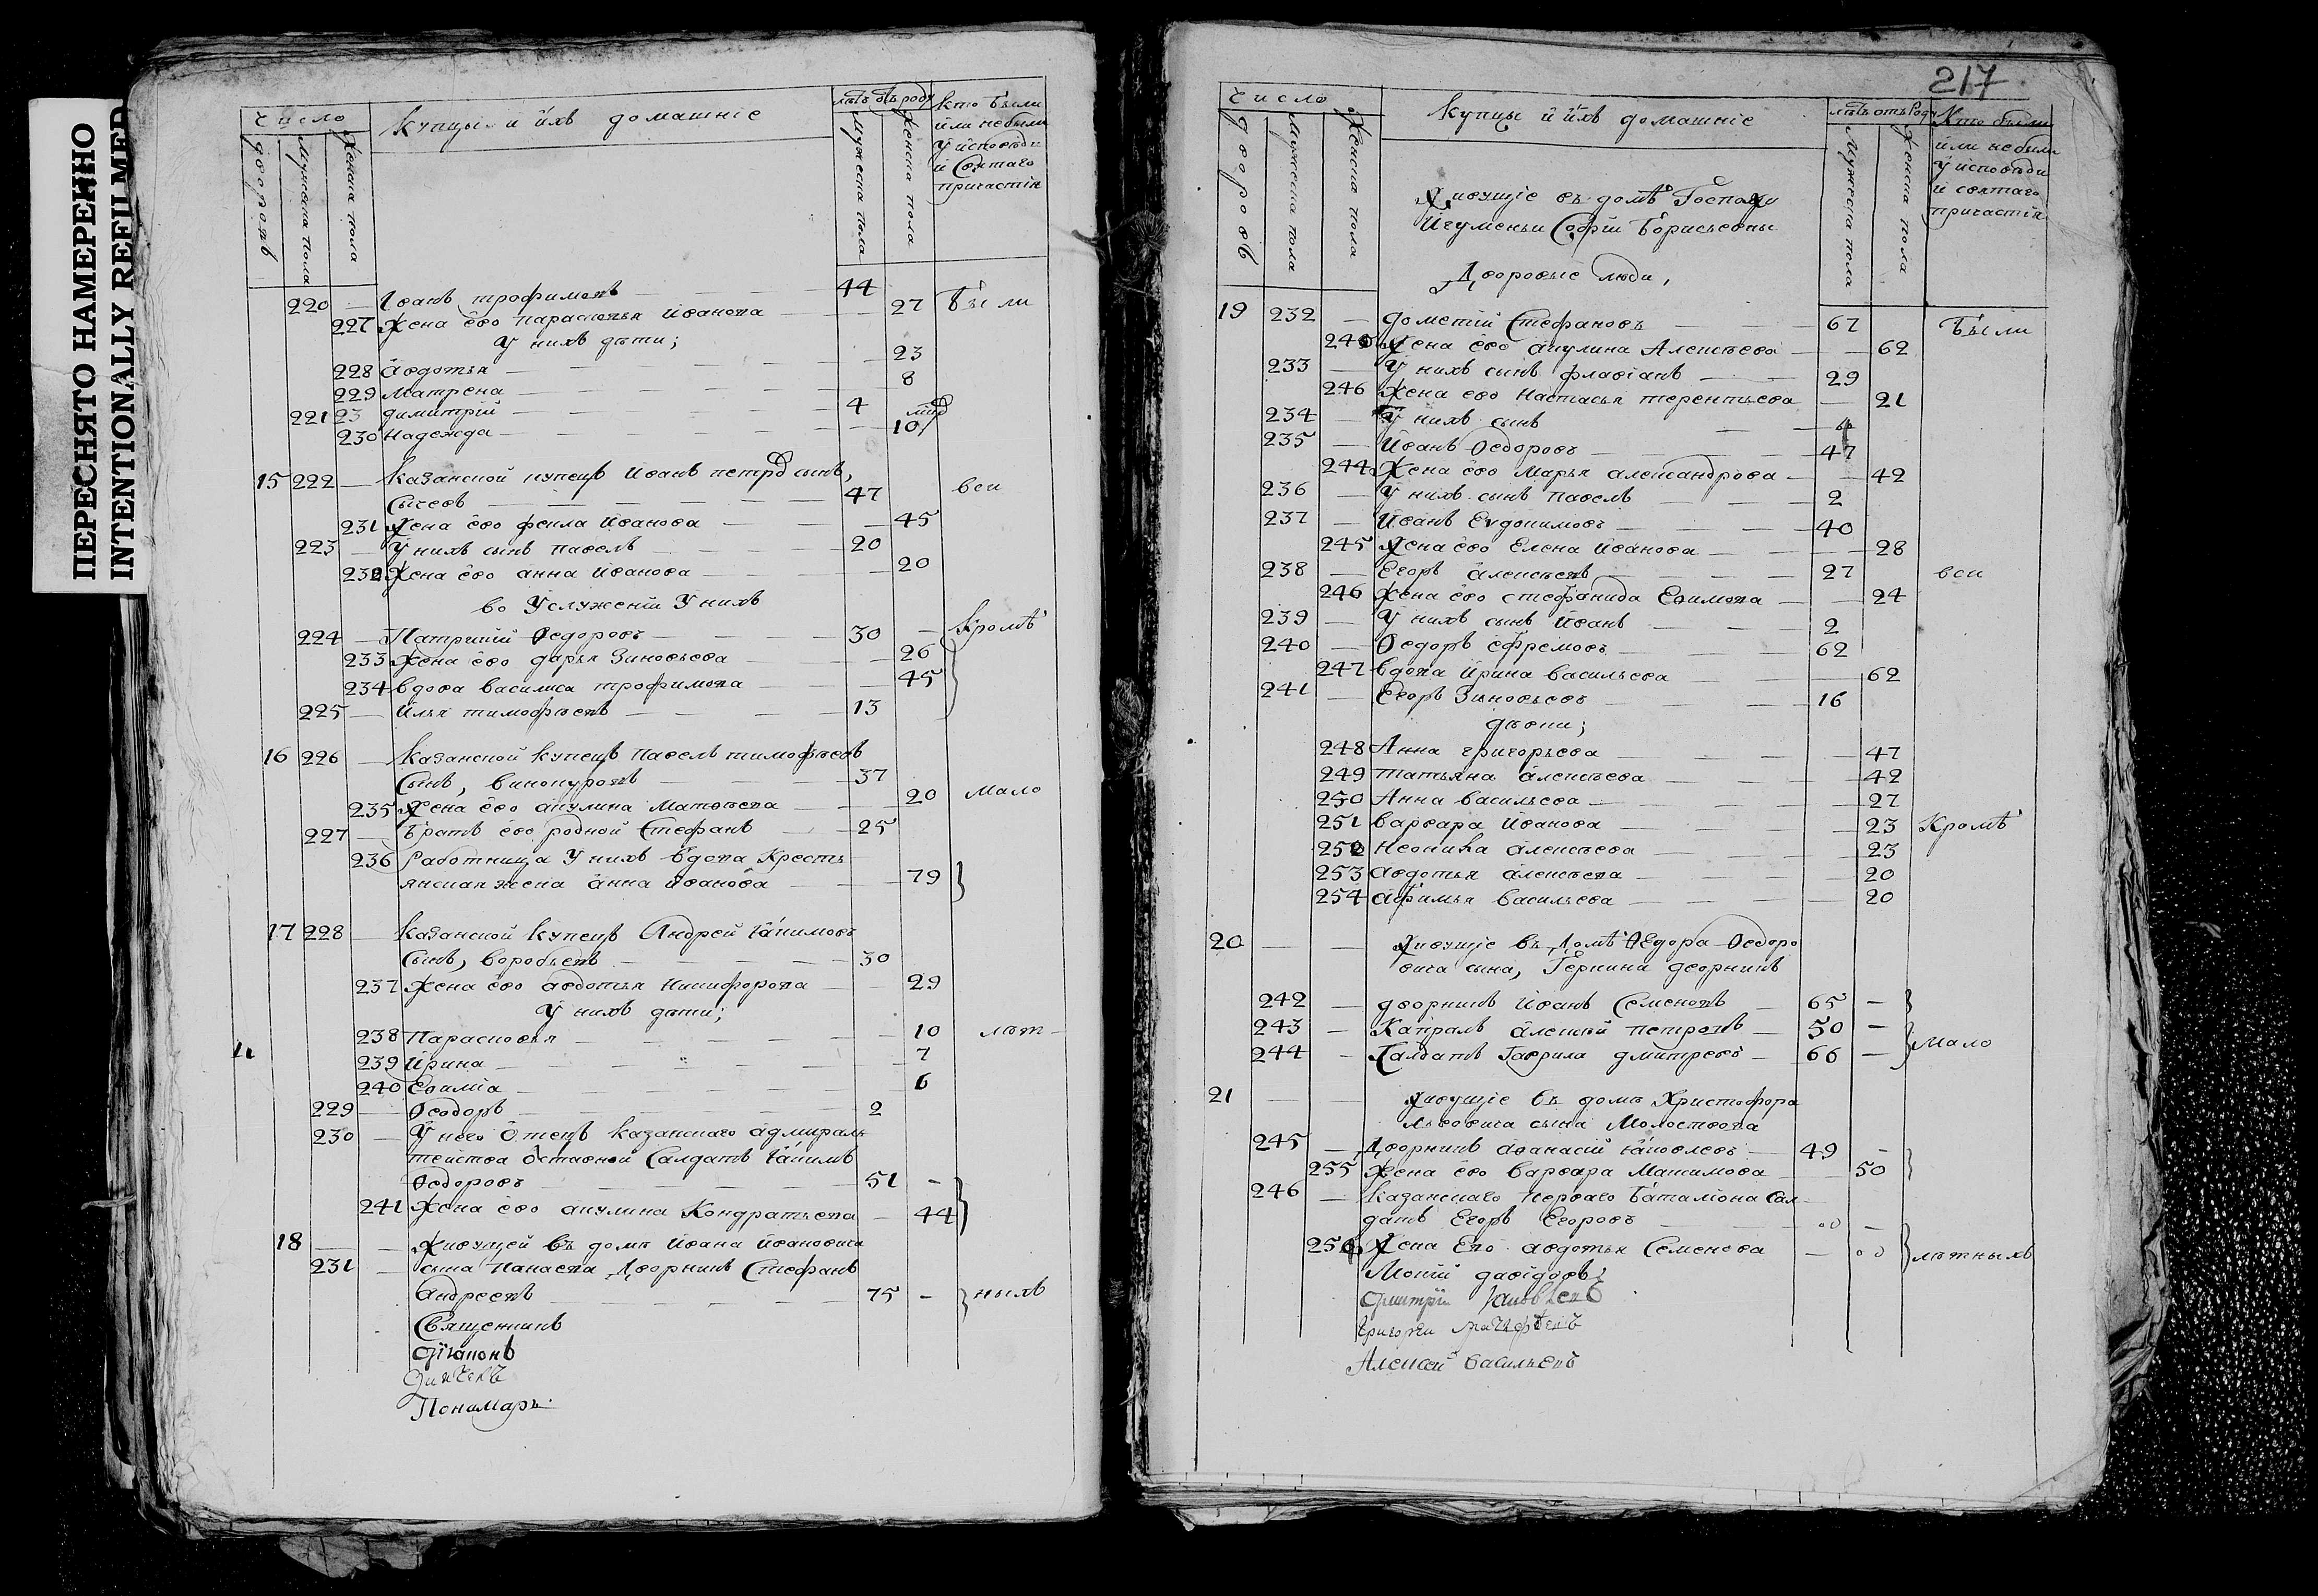 ПЕРЕСНЯТО НАМЕРЕННО
INTENTIONALLY REFILMED
Число
дворовъ
Мужеска пола
Женска пола
Купцы и ихъ домашние
лѣтъ отъ роду
Мужеска пола
Женска пола
Кто были
или не были
у исповѣди
и святаго
причастія
220 — Иванъ трофимовъ — 44
227 Жена ево парасковья Иванова — 27 были
У нихъ дѣти;
228 Авдотья — 23
229 Матрена — 8
221 23 димитрій — 4
230 Надежда — 10
15 222 — Казанской купецъ Иванъ петровъ сынъ,
Сычевъ — 47 вси
231 Жена ево фекла Иванова — 45
223 — У нихъ сынъ павелъ — 20
232 Жена ево анна Иванова — 20
во Услуженіи У нихъ
224 — Патрикій Ѳедоровъ — 30 — Кромѣ
233 Жена ево дарья Зиновьева — 26
234 вдова василиса трофимова — 45
225 — Илья тимофѣевъ — 13
16 226 — Казанской купецъ Павелъ тимофѣевъ
Сынъ, винокуровъ — 37
235 Жена ево акулина Матвѣева — 20 мало
227 — Братъ ево родной Стефанъ — 25
236 Работница У нихъ вдова Кресть
янская жена анна иванова — 79
17 228 — Казанской Купецъ Андрей Iакимовъ
Сынъ, воробьевъ — 30
237 Жена ево авдотья Никифорова — 29
У нихъ дѣти;
238 Парасковья — 10 лѣт-
239 Ирина — 7
240 Евимія — 6
229 — Ѳеодоръ — 2
230 — У него Отецъ Казанскаго адмираль
тейства Отставной Салдатъ Iакимъ
Ѳедоровъ — 51 -
241 Жена ево акулина Кондратьева — 44
18 — — Живущей въ домѣ Ивана Ивановича
231 — сына Панаева Дворникъ Стефанъ
Андреевъ — 75 - ныхъ
Священникъ
Діаконъ
Дьячекъ
Пономарь
217
Число
дворовъ
Мужеска пола
Женска пола
Купцы и ихъ домашние
лѣтъ отъ роду
Мужеска пола
Женска пола
Кто были
или не были
у исповѣди
и святаго
причастія
Живущіе въ домѣ Госпожи
Игуменьи Софіи Борисьевны
Дворовые люди,
19 232 — дометій Стефановъ — 67 Были
245 Жена ево акулина Алексѣева — 62
233 — У нихъ сынъ флавіанъ — 29
246 Жена ево Настасья терентьева — 21
234 — У нихъ сынъ — 4
235 — Иванъ Ѳедоровъ — 47
244 Жена ево Марья александрова — 42
236 — У нихъ сынъ павелъ — 2
237 — Иванъ Евдокимовъ — 40
245 Жена ево Елена Иванова — 28
238 — Егоръ алексѣевъ — 27 вси
246 Жена ево стефанида Евимова — 24
239 — У нихъ сынъ Иванъ — 2
240 — Ѳедоръ ефремовъ — 62
247 вдова Ирина васильева — 62
241 — Егоръ Зиновьевъ — 16
дѣвки;
248 Анна григорьева — 47
249 татьяна алексѣева — 42
250 Анна васильева — 27
251 варвара Иванова — 23 Кромѣ
252 Неонила алексѣева — 23
253 авдотья алексѣева — 20
254 афимья васильева — 20
20 — — Живущіе въ домѣ Ѳедора Ѳедоро
вича сына, Геркина дворникъ
242 — дворникъ Иванъ Семеновъ — 65 —
243 — Капралъ алексѣй петровъ — 50 —
244 — Салдатъ Гаврила дмитревъ — 66 — мало
21 — — Живущіе въ домѣ Христофора
Львовича сына Молоствова
245 — Дворникъ аѳанасій Iаковлевъ — 49 -
255 Жена ево варвара Максимова — 50
246 — Казанскаго перваго баталіона сал-
датъ Егоръ Егоровъ —
256 Жена Его авдотья Семенова — лѣтныхъ
Мокій давидовъ
Димитрій Iаковлевъ
Григорей
Алексей Васильевъ